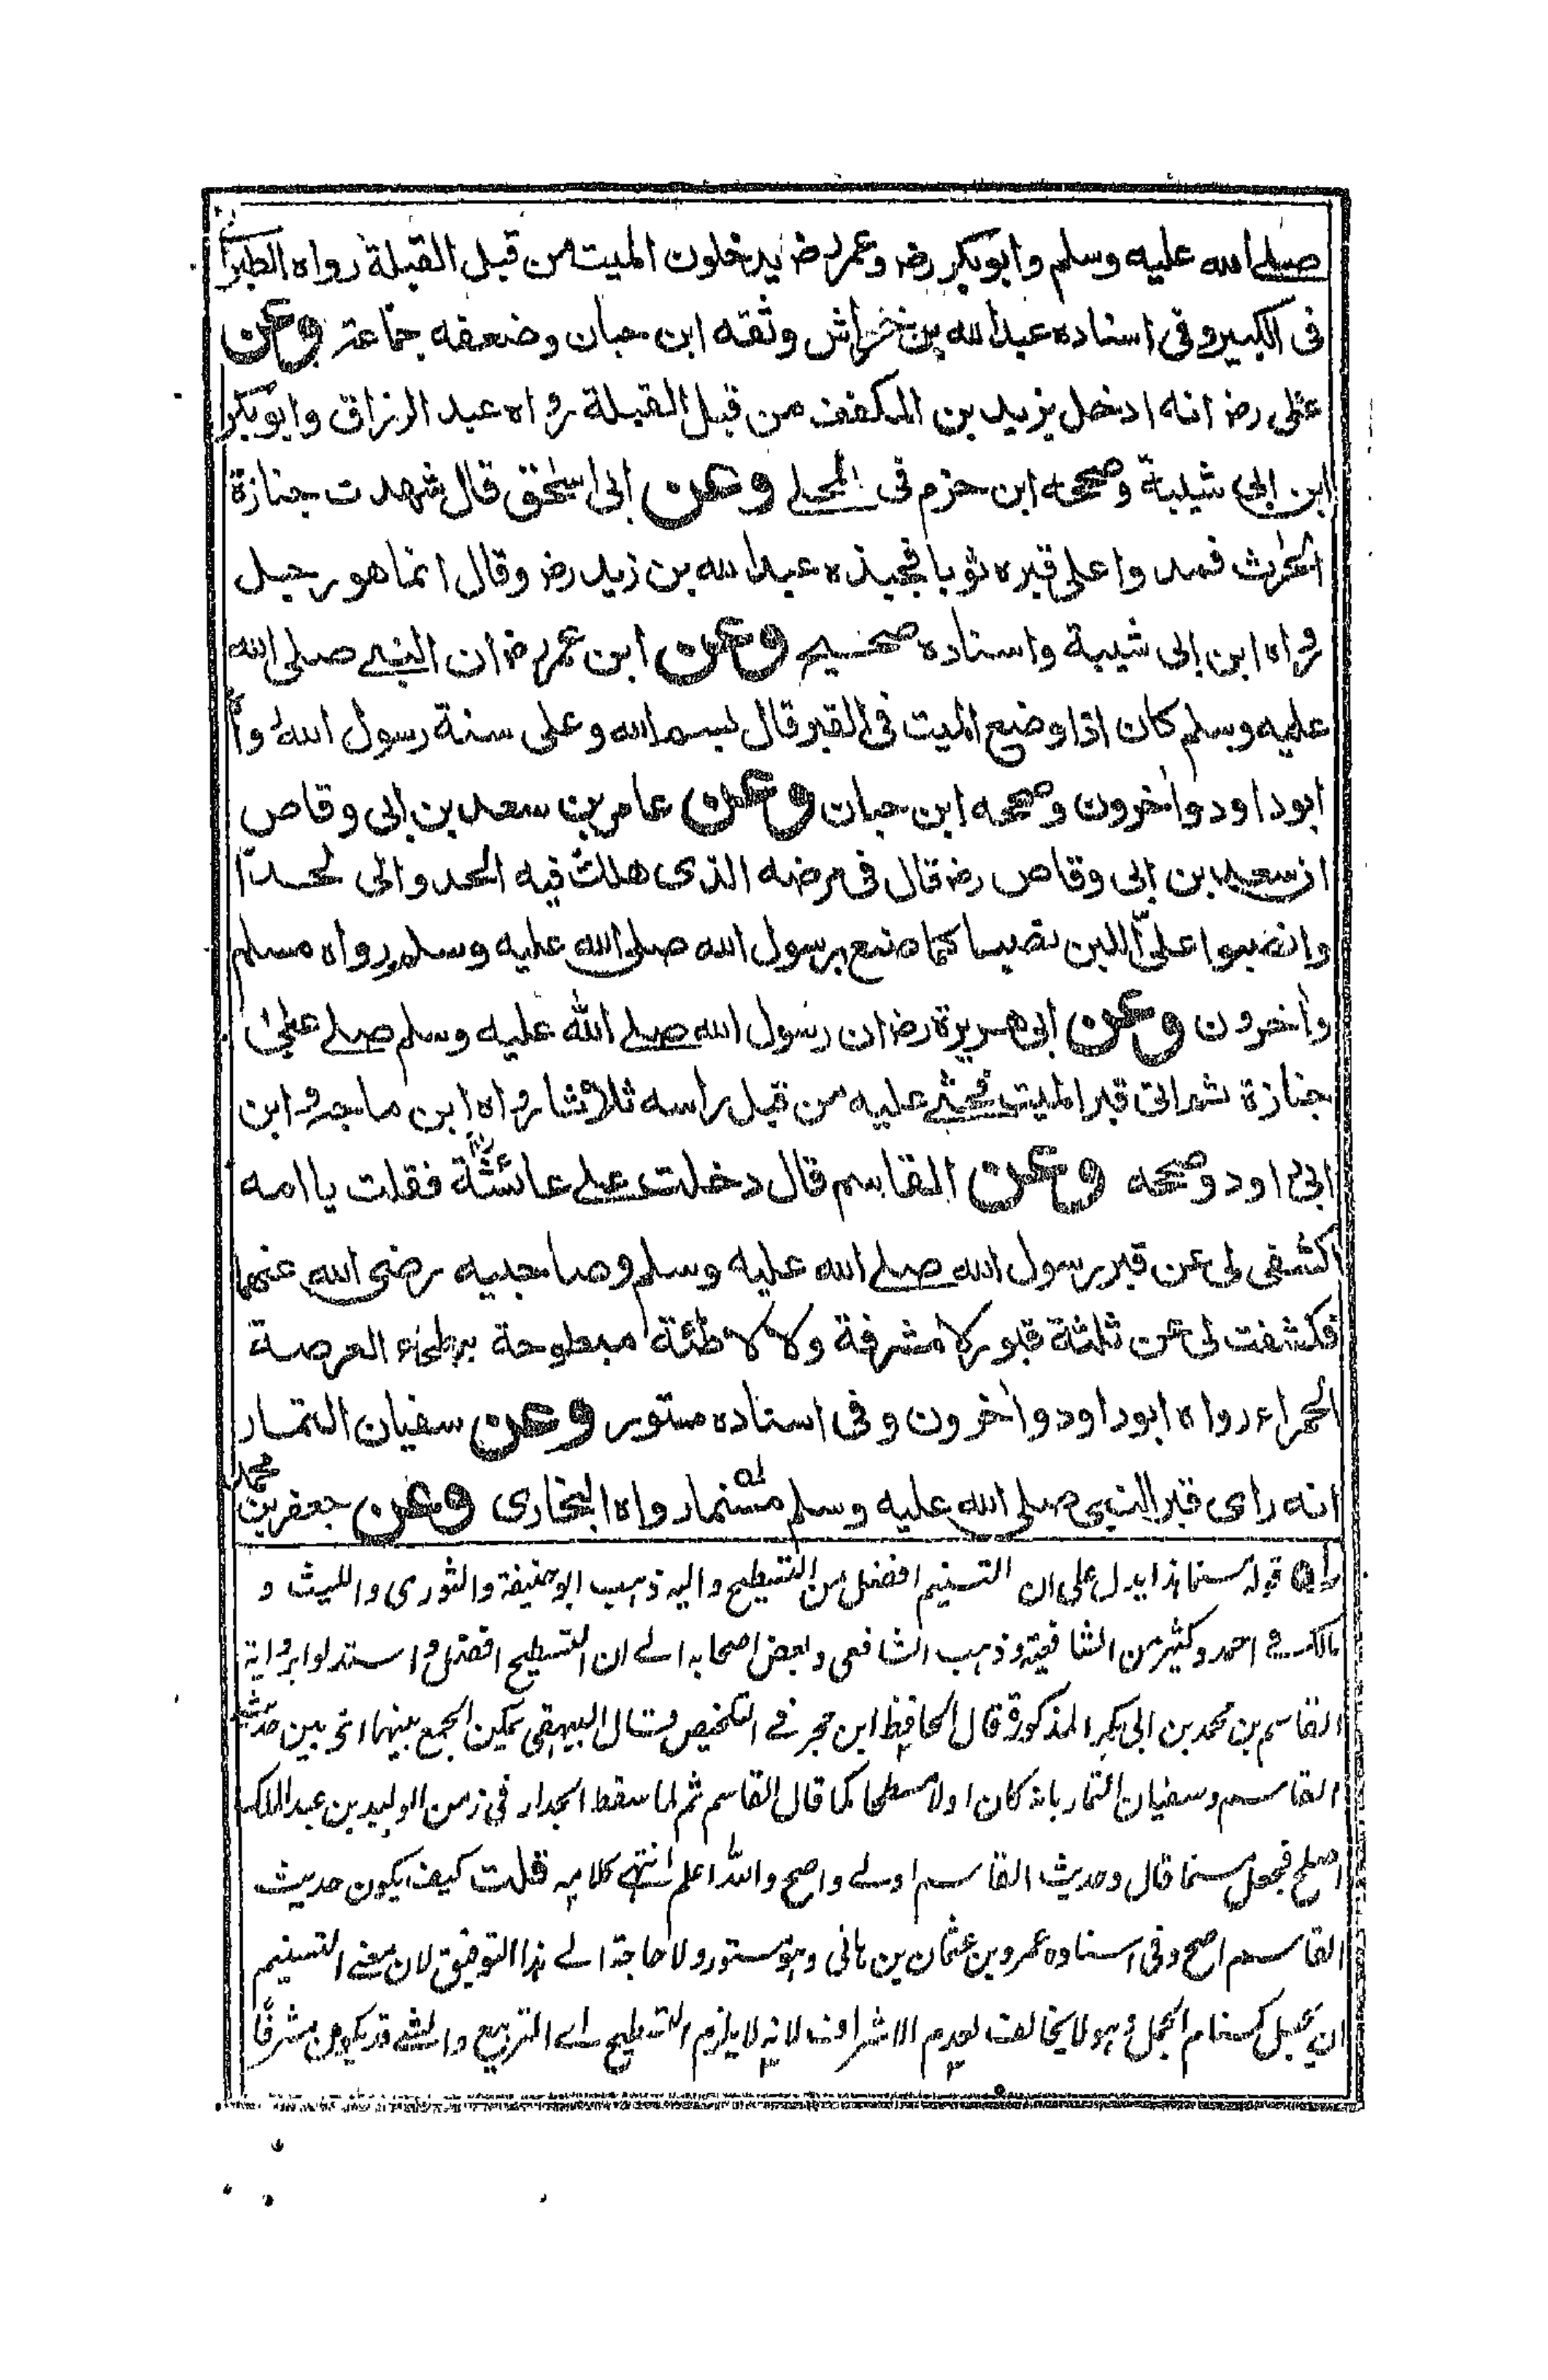 صلى الله عليه وسلم وابوبكر رضـ وعمر رضـ يدخلون الميت من قبل القبلة رواه الطبرا
فى الكبير وفى اسناده عبد الله بن خراش وثقه ابن حبان وضعفه جماعة وعن
على رضـ انه ادخل يزيد بن المكفف من قبل القبلة رواه عبد الرزاق وابوبكر
ابن ابى شيبة وصححه ابن حزم فى المحلى وعن ابى اسحٰق قال شهدت جنازة
الحٰرث فمدوا على قبره ثوبا فجبذه عبد الله بن زيد رضـ وقال انما هو رجل
رواه ابن ابى شيبة واسناده صحيح وعن ابن عمر رضـ ان النبى صلى الله
عليه وسلم كان اذا وضع الميت فى القبر قال بسم الله وعلى سنة رسول الله
ابو داود واٰخرون وصححه ابن حبان وعن عامر بن سعد بن ابى وقاص
ان سعد بن ابى وقاص رضـ قال فى مرضه الذى هلك فيه الحدوا لى لحدا
وانصبوا علىّ اللبن نصبا كما صنع برسول الله صلى الله عليه وسلم رواه مسلم
واٰخرون وعن ابى هريرة رضـ ان رسول الله صلى الله عليه وسلم صلى على
جنازة ثم اتى قبر الميت فحثى عليه من قبل راسه ثلاثا رواه ابن ماجه وابن
ابى داود وصححه وعن القاسم قال دخلت على عائشة فقلت يا امه
اكشفى لى عن قبر رسول الله صلى الله عليه وسلم وصاحبيه رضى الله عنهما
فكشفت لى عن ثلثة قبور لا مشرفة ولا لاطئة مبطوحة ببطحاء العرصة
الحمراء رواه ابوداود واٰخرون وفى اسناده مستور وعن سفيان التمار
انه راى قبر النبى صلى الله عليه وسلم مسنما رواه البخارى وعن جعفر بن محمد
له قوله مسنما هذا يدل على ان التسنيم افضل من التسطيح واليه ذهب ابو حنيفة والثورى والليث و
مالك و احمد وكثير من الشافعية وذهب الشافعى وبعض اصحابه الى ان التسطيح افضل واستدلوا برواية
القاسم بن محمد بن ابى بكر المذكورة قال الحافظ ابن حجر فى التلخيص وقال البيهقى يمكن الجمع بينهما اى بين حديث
القاسم وسفيان التمار بانه كان اولا مسطحا كما قال القاسم ثم لما سقط الجدار فى زمن الوليد بن عبد الملك
اصلح فجعل مسنما قال وحديث القاسم اولى واصح والله اعلم انتهى كلامه قلت كيف يكون حديث
القاسم اصح وفى اسناده عمرو بن عثمان بن هانى وهو مستور ولا حاجة الى هذا التوفيق لان معنى التسنيم
ان يجعل كسنام الجمل وهو لا يخالف لعدم الاشراف لانه لا يلزم التسطيح اى التربيع والشئ قد يكون مشرفا